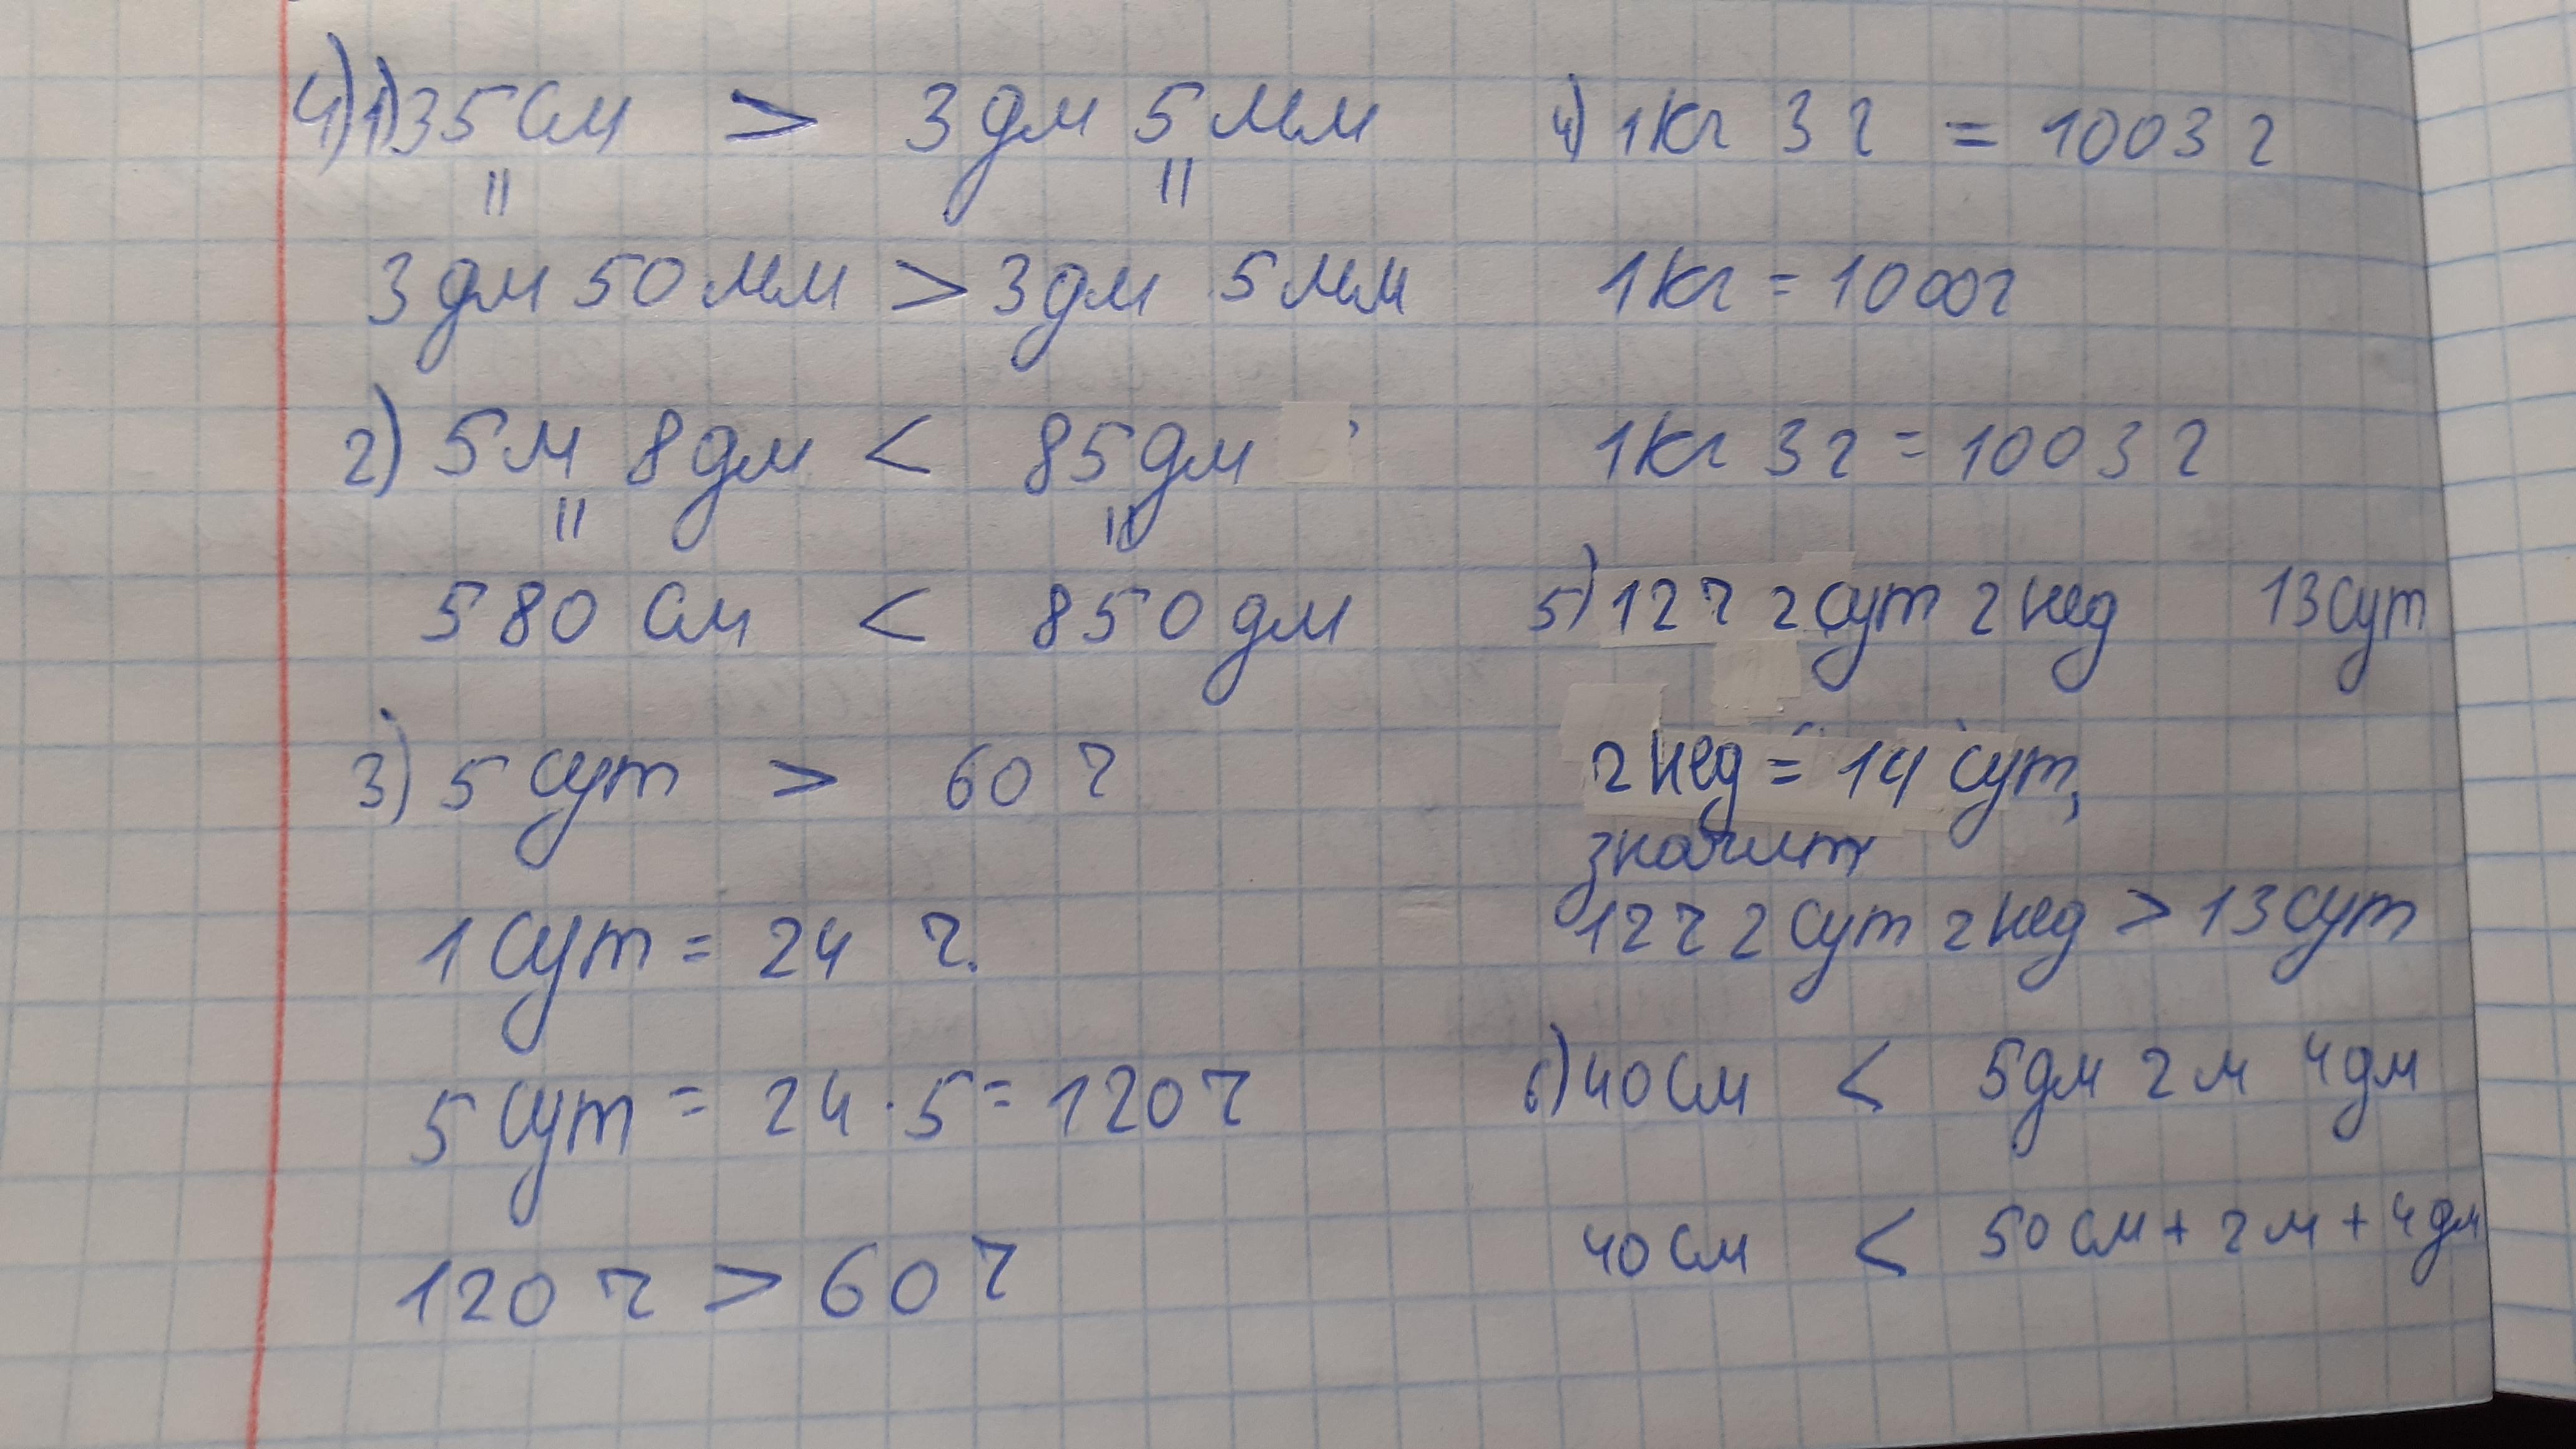 4) 1) 35 см > 3 дм 5 мм
|| ||
3 дм 50 мм > 3 дм 5 мм
2) 5 м 8 дм < 85 дм
|| ||
580 см < 850 дм
3) 5 сут > 60 ч
1 сут = 24 ч.
5 сут = 24 · 5 = 120 ч
120 ч > 60 ч
4) 1 кг 3 г = 1003 г
1 кг = 1000 г
1 кг 3 г = 1003 г
5) 12 ч 2 сут 2 нед 13 сут
2 нед = 14 сут,
значит
12 ч 2 сут 2 нед > 13 сут
6) 40 см < 5 дм 2 м 4 дм
40 см < 50 см + 2 м + 4 дм